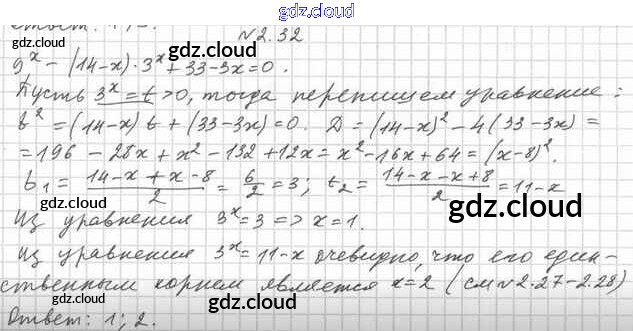 gdz.cloud
Ответ: 1; 2.
№2.32
gdz.cloud
9^x - (14-x)·3^x + 33-3x=0.
gdz.cloud
Пусть 3^x = t > 0, тогда перепишем уравнение:
t^2 = (14-x)t + (33-3x)=0. D = (14-x)^2 - 4(33-3x) =
= 196 - 28x + x^2 - 132 + 12x = x^2 - 16x + 64 = (x-8)^2.
t_1 = (14-x+x-8)/2 = 6/2 = 3; t_2 = (14-x-x+8)/2 = 11-x
gdz.cloud
gdz.cloud
Из уравнения 3^x = 3 => x = 1.
Из уравнения 3^x = 11-x очевидно, что его един-
gdz.cloud
ственным корнем является x=2 (см №2.27-2.28)
gdz.cloud
gdz.cloud
Ответ: 1; 2.
gdz.cloud